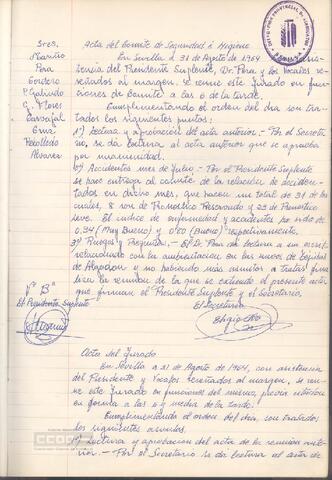 Sres.
Mariño
Pera
Cordero
P. Galindo
G. Flores
Carvajal
Cruz
Rebolledo
Alvarez
Acta del Comité de Seguridad e Higiene
En Sevilla a 31 de Agosto de 1964
tencia del Presidente Suplente, Dr. Pera y los Vocales re-
señados al margen, se reune este Jurado en fun-
ciones de Comité a las 6 de la tarde.
Cumplimentando el orden del dia son tra-
tados los siguientes puntos:
1º) Lectura y aprobación del acta anterior. - Por el Secreta-
rio, se da lectura al acta anterior que se aprueba
por unanimidad.
2º) Accidentes mes de Julio. - Por el Presidente Suplente
se hace entrega al Comité de la relación de acciden-
tados en dicho mes, que hacen un total de 31 de los
cuales, 8 son de Pronostico Reservado y 23 de Pronostico
leve. El indice de enfermedad y accidentes ha sido de
0,94 (Muy Bueno) y 0,80 (Bueno) respectivamente.
3º) Ruegos y Preguntas. - El D. Pera da lectura a un escrito
relacionado con la en las naves de
de Algodon y no habiendo mas asuntos a tratar fina-
liza la reunión de la que se extiende el presente acta
que firman el Presidente Suplente y el Secretario.
Vº Bº
El Presidente Suplente
El Secretario
Acta del Jurado
En Sevilla a 31 de Agosto de 1964, con asistencia
del Presidente y Vocales reseñados al margen, se reu-
ne este Jurado en funciones del mismo, previa citación
en forma a las 6 y media de la tarde.
Cumplimentando el orden del dia, son tratados
los siguientes asuntos.
1º) Lectura y aprobación del acta de la reunión ante-
rior. - Por el Secretario se da lectura al acta de
CCOO